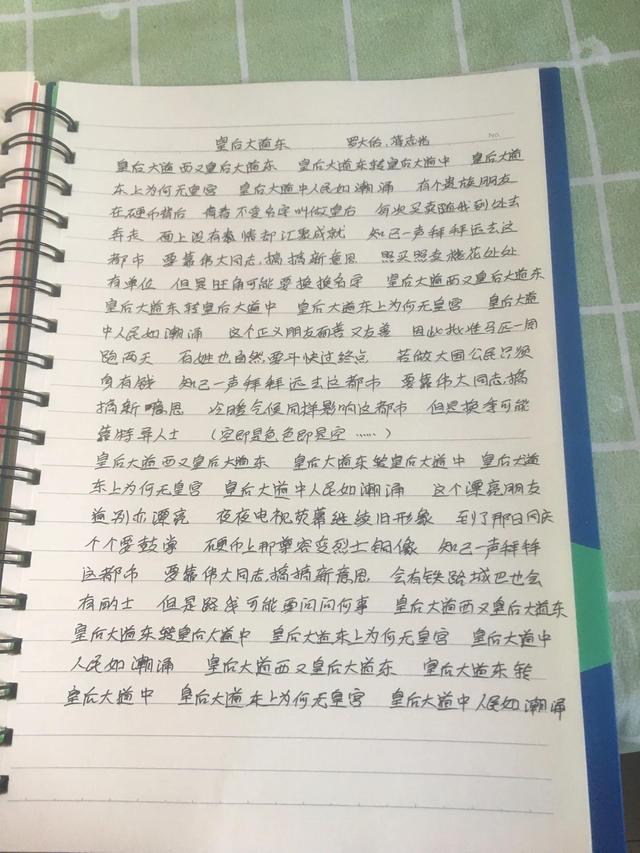 皇后大道东 罗大佑、蒋志光 No.
皇后大道西又皇后大道东 皇后大道东转皇后大道中 皇后大道
东上为何无皇宫 皇后大道中人民如潮涌 有个贵族朋友
在硬币背后 青春不变名字叫做皇后 每次买卖随我到处去
奔走 面上没有表情却汇聚成就 知己一声拜拜远去这
都市 要靠伟大同志搞搞新意思 照买照卖楼花处处
有单位 但是旺角可能要换换名字 皇后大道西又皇后大道东
皇后大道东转皇后大道中 皇后大道东上为何无皇宫 皇后大道
中人民如潮涌 这个正义朋友面善又友善 因此批准马匹一周
跑两天 百姓也自然要斗快过终点 若做大国公民只须
身有钱 知己一声拜拜远去这都市 要靠伟大同志搞
搞新意思 冷暖气候同样影响这都市 但是换季可能
靠特异人士 (空即是色色即是空……)
皇后大道西又皇后大道东 皇后大道东转皇后大道中 皇后大道
东上为何无皇宫 皇后大道中人民如潮涌 这个漂亮朋友
道别亦漂亮 夜夜电视荧幕继续旧形象 到了那日同庆
个个要鼓掌 硬币上那尊容变烈士铜像 知己一声拜拜
这都市 要靠伟大同志搞搞新意思 会有铁路城巴也会
有的士 但是路线可能要问问何事 皇后大道西又皇后大道东
皇后大道东转皇后大道中 皇后大道东上为何无皇宫 皇后大道中
人民如潮涌 皇后大道西又皇后大道东 皇后大道东转
皇后大道中 皇后大道东上为何无皇宫 皇后大道中人民如潮涌